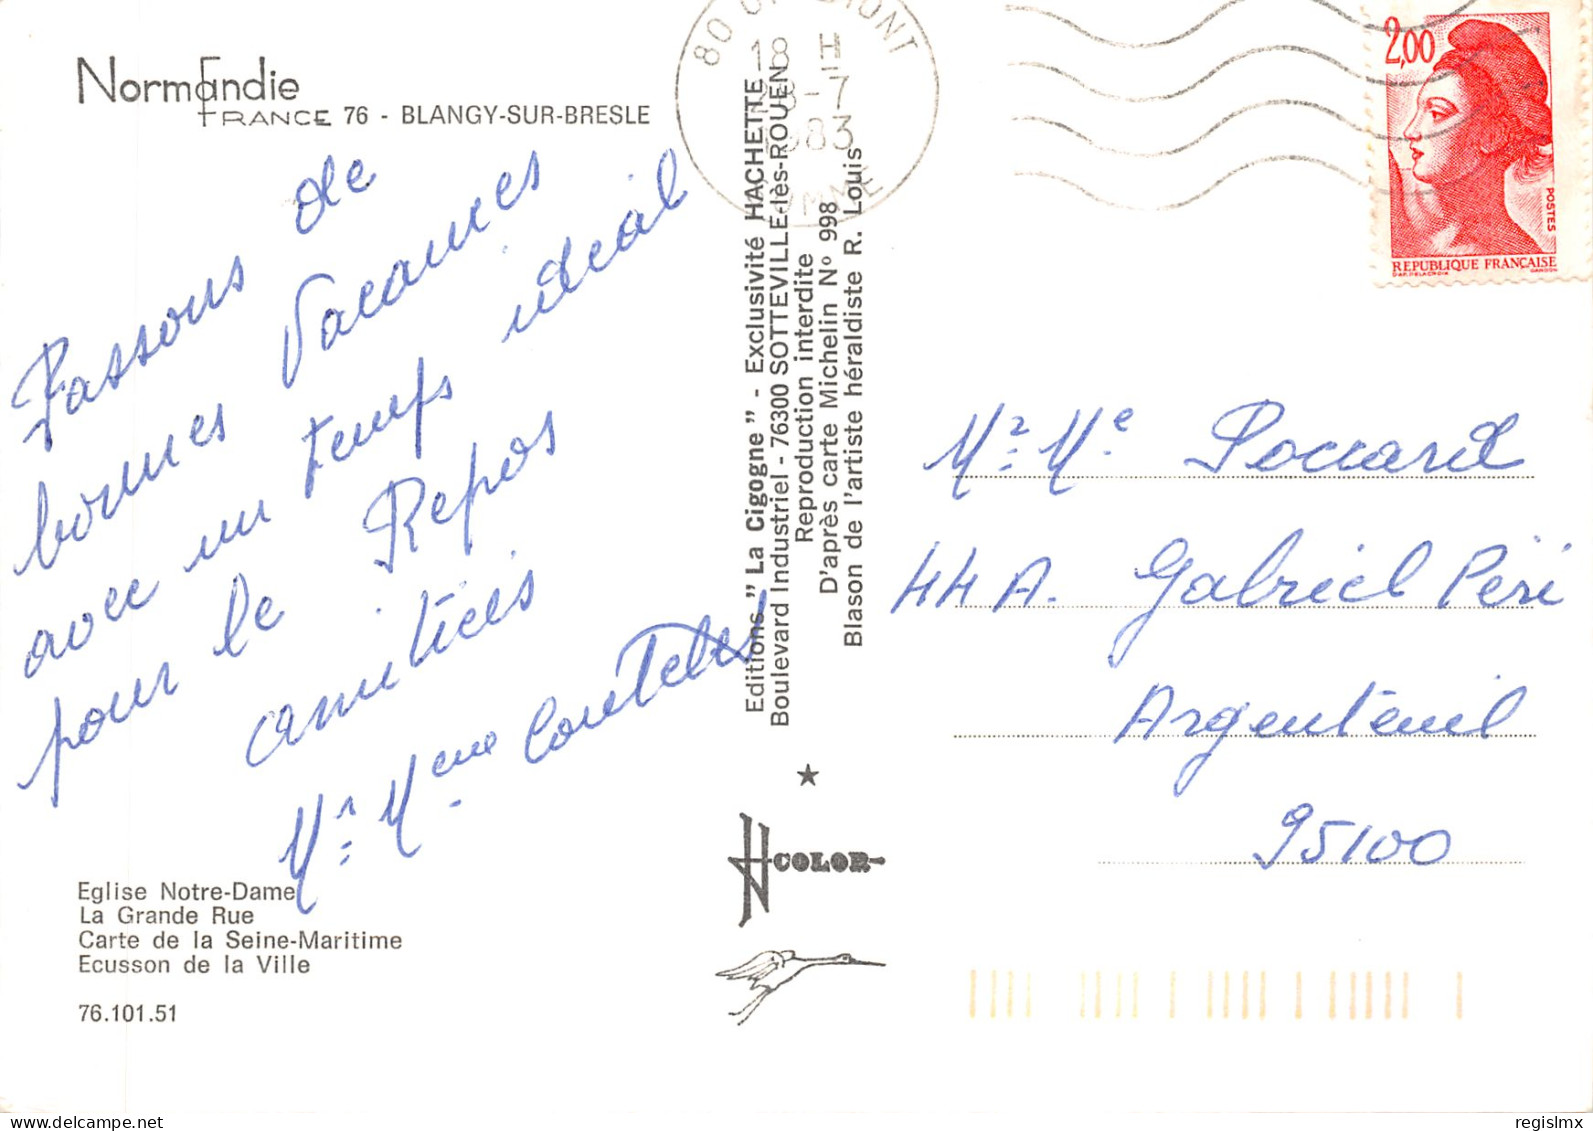 Normandie
FRANCE 76 - BLANGY-SUR-BRESLE
Passons de
bonnes Vacances
avec un temps idéal
pour le Repos
amitiés
Mr. Mme
Eglise Notre-Dame
La Grande Rue
Carte de la Seine-Maritime
Ecusson de la Ville
76.101.51
Editions " La Cigogne " - Exclusivité HACHETTE
Boulevard Industriel - 76300 SOTTEVILLE-lès-ROUEN
Reproduction interdite
D'après carte Michelin N° 998
Blason de l'artiste héraldiste R. Louis
COLOR
80
18 H
-7
1983
SOMME
2,00
POSTES
REPUBLIQUE FRANÇAISE
D'AP. DELACROIX GANDON
Mr. Me Poccard
44 A. Gabriel Péri
Argenteuil
95100
regislmx